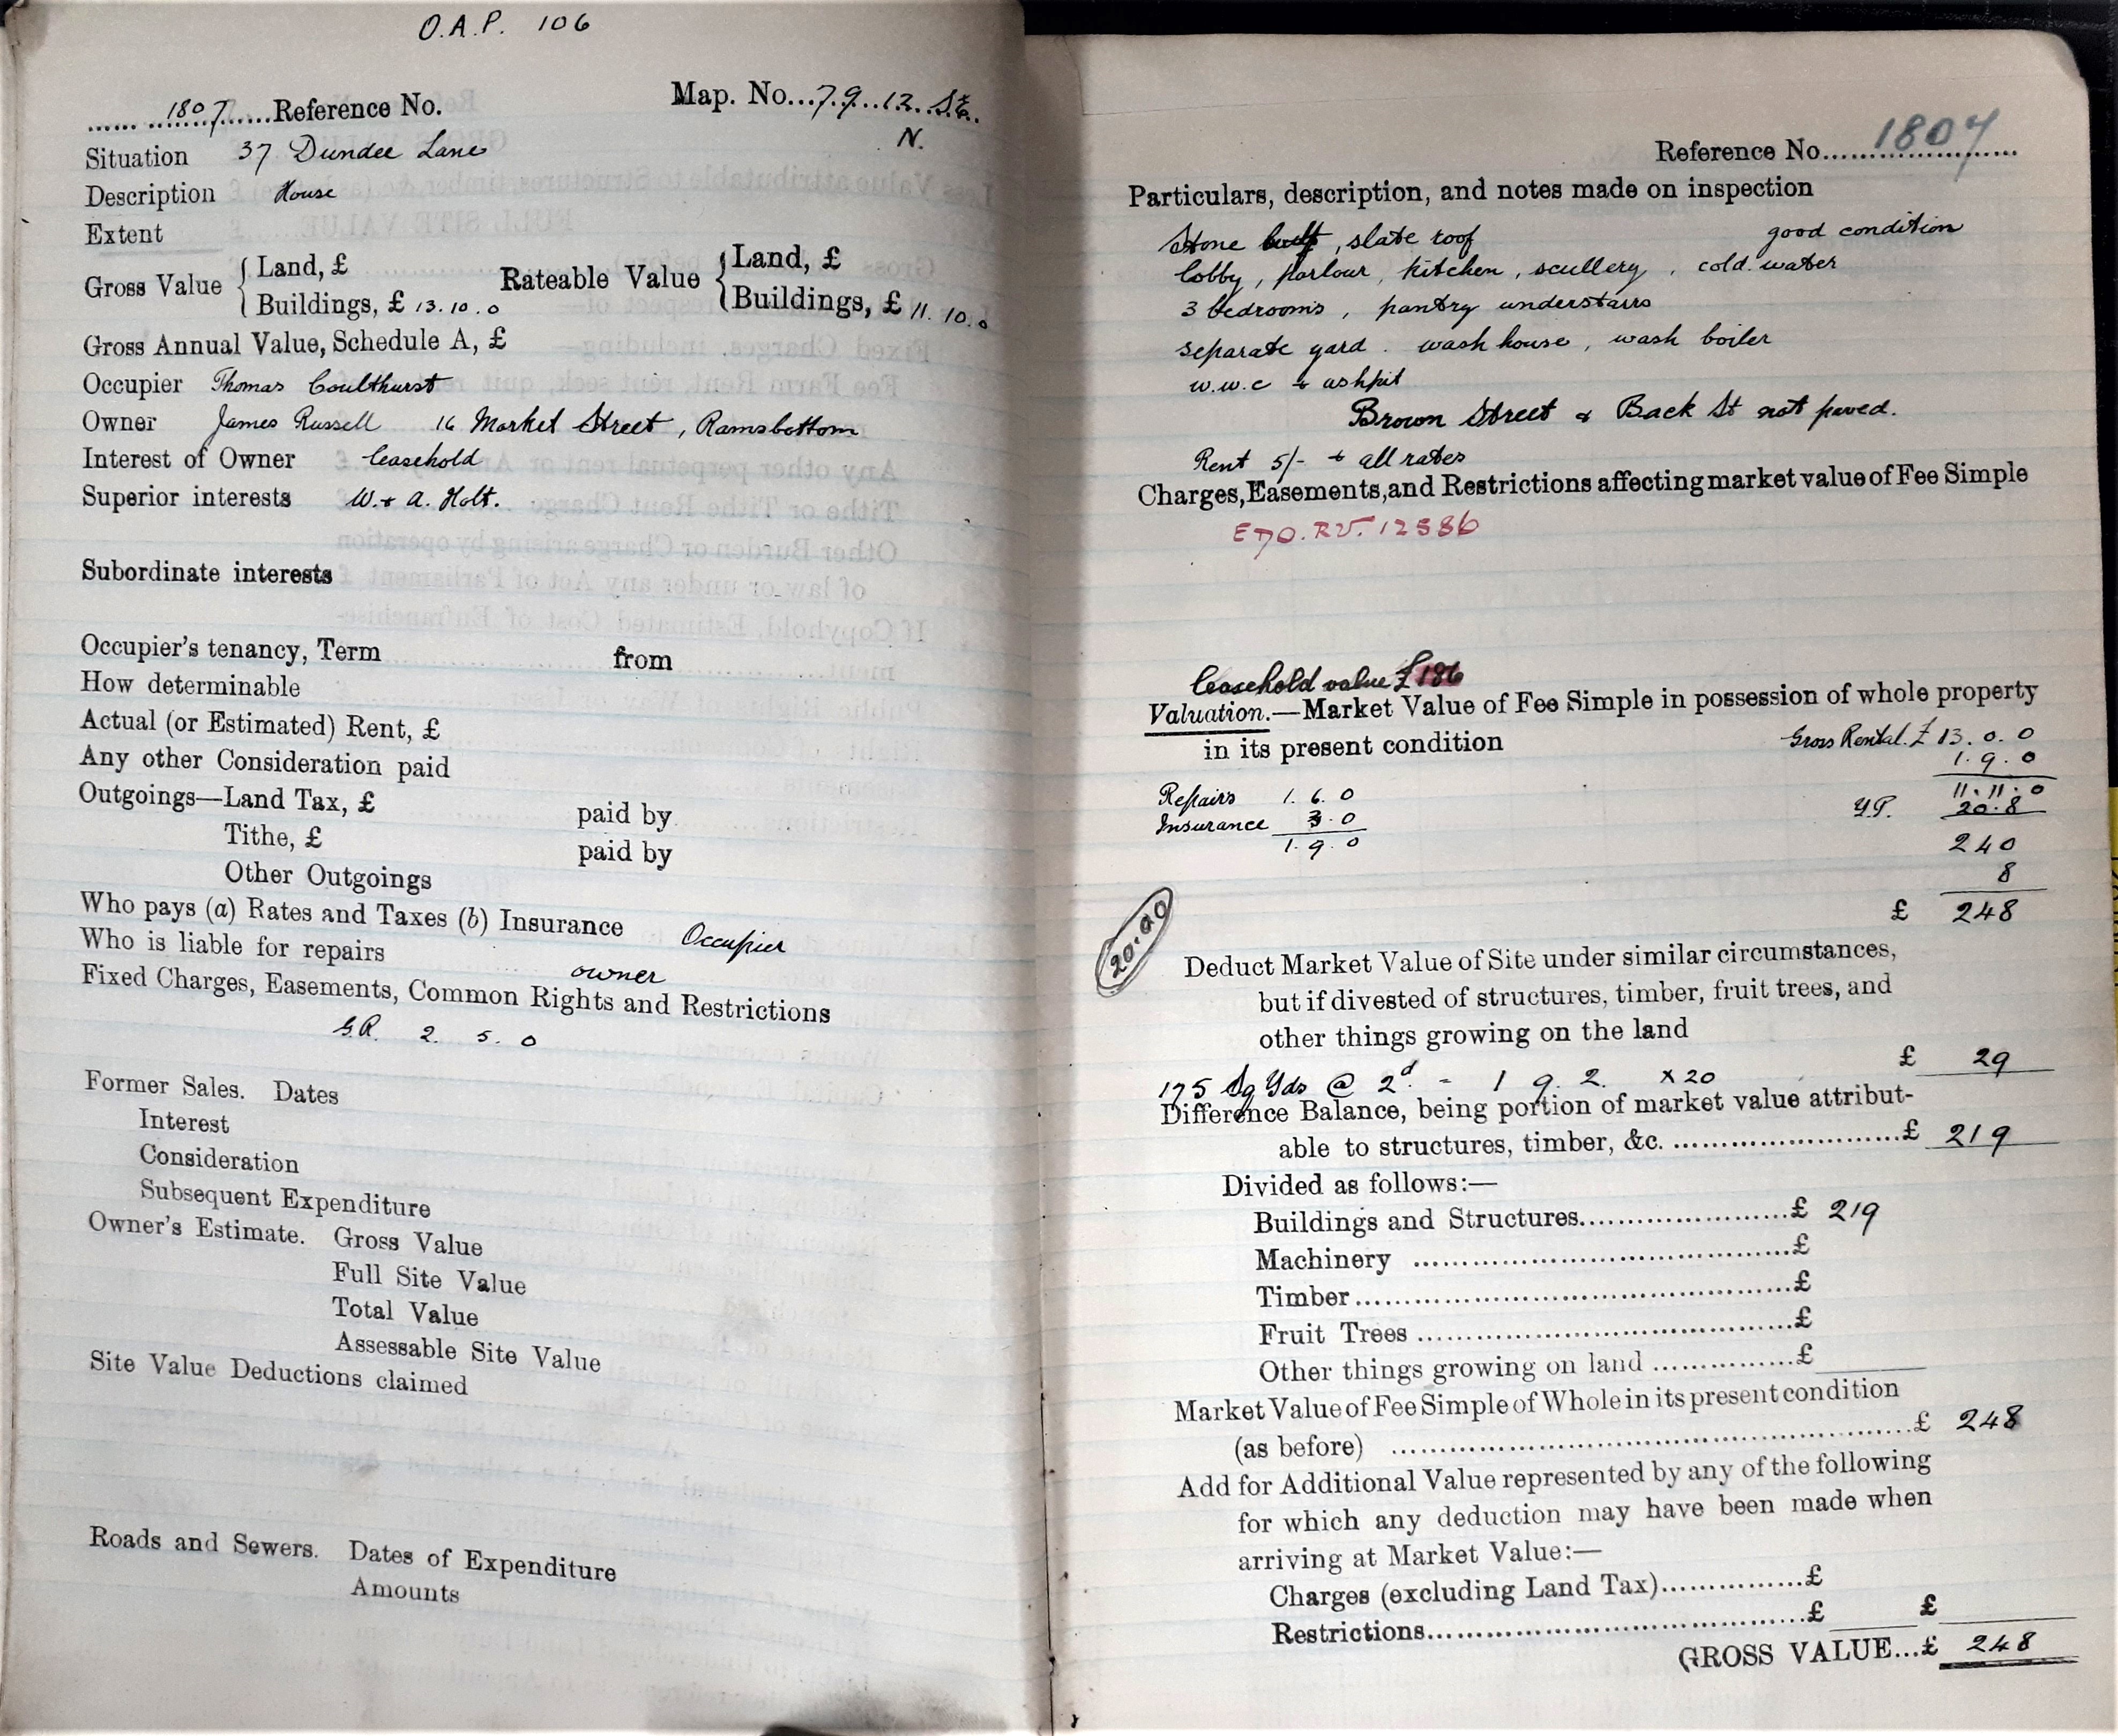 O.A.P. 106
1807 Reference No.
Map. No... 79.. 12.. St.
N.
Situation 37 Dundee Lane
Description House
Extent
Gross Value { Land, £
Buildings, £ 13.10.0
Rateable Value { Land, £
Buildings, £ 11.10.0
Gross Annual Value, Schedule A, £
Occupier Thomas Coulthurst
Owner James Russell 16 Market Street, Ramsbottom
Interest of Owner leasehold
Superior interests W. & A. Holt.
Subordinate interests
Occupier's tenancy, Term from
How determinable
Actual (or Estimated) Rent, £
Any other Consideration paid
Outgoings—Land Tax, £ paid by
Tithe, £ paid by
Other Outgoings
Who pays (a) Rates and Taxes (b) Insurance Occupier
Who is liable for repairs owner
Fixed Charges, Easements, Common Rights and Restrictions
G.R. 2. 5. 0
Former Sales. Dates
Interest
Consideration
Subsequent Expenditure
Owner's Estimate. Gross Value
Full Site Value
Total Value
Assessable Site Value
Site Value Deductions claimed
Roads and Sewers. Dates of Expenditure
Amounts
Reference No. 1807
Particulars, description, and notes made on inspection
Stone built, slate roof good condition
lobby, parlour, kitchen, scullery, cold water
3 bedrooms, pantry understairs
separate yard. wash house, wash boiler
w.w.c & ashpit
Brown Street & Back St not paved.
Rent 5/- & all rates
Charges, Easements, and Restrictions affecting market value of Fee Simple
leasehold value £186
Valuation.—Market Value of Fee Simple in possession of whole property
in its present condition
Gross Rental £ 13. 0. 0
1. 9. 0
11. 11. 0
Repairs 1. 6. 0
Insurance 3. 0
1. 9. 0
Y.P. 20.8
240
8
£ 248
Deduct Market Value of Site under similar circumstances,
but if divested of structures, timber, fruit trees, and
other things growing on the land
£ 29
175 Sq Yds @ 2d. = 1 9. 2. x 20
Difference Balance, being portion of market value attribut-
able to structures, timber, &c. £ 219
Divided as follows:—
Buildings and Structures £ 219
Machinery £
Timber £
Fruit Trees £
Other things growing on land £
Market Value of Fee Simple of Whole in its present condition
(as before) £ 248
Add for Additional Value represented by any of the following
for which any deduction may have been made when
arriving at Market Value:—
Charges (excluding Land Tax) £
Restrictions £ £
GROSS VALUE...£ 248